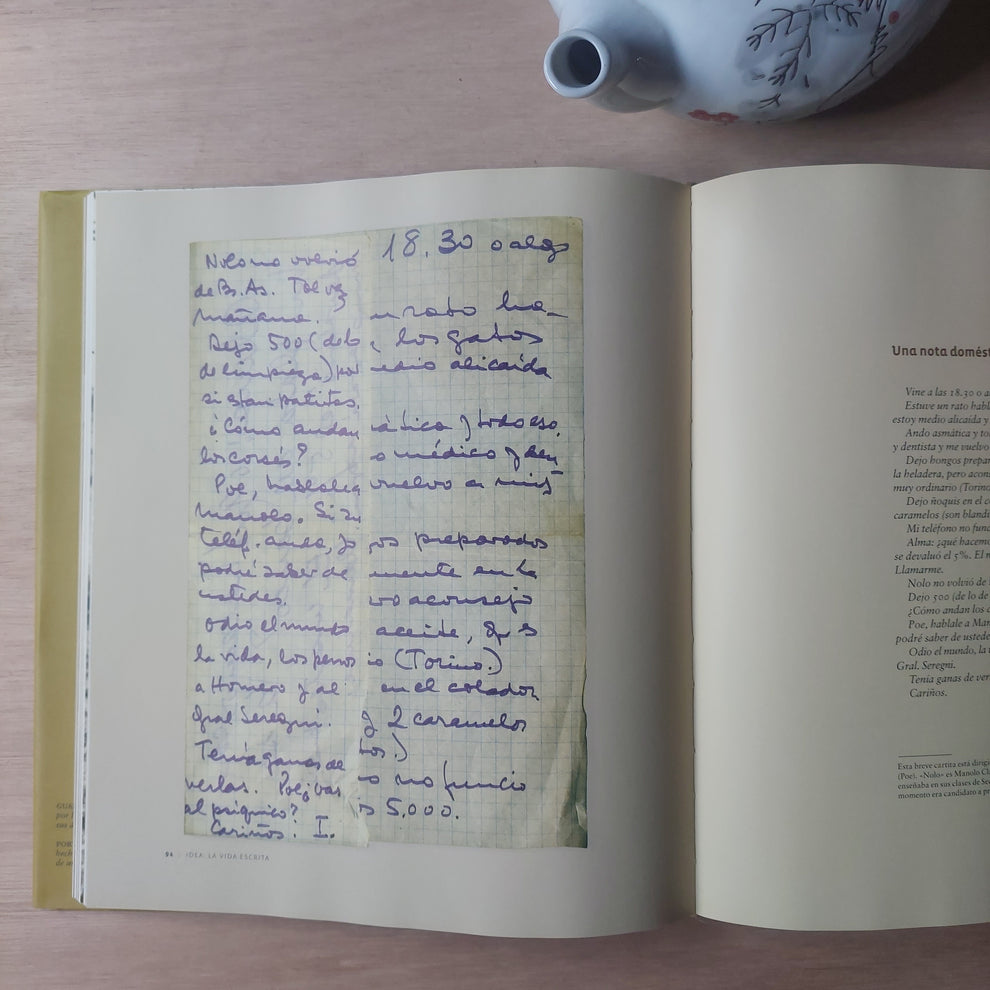 Nolo no volvió
de Bs. As. Tal vez
mañana.
Dejo 500 (de lo
de limpieza) por
si stan patitas.
¿Cómo andan
los corsés?
Poe, hablale a
Manolo. Si su
teléf. anda, yo
podré saber de
ustedes.
Odio el mundo
la vida, los perros
a Homero y al
Gral Seregni.
Tenía ganas de
verlas. Poe, vas
al psíquico?
Cariños. I.
18.30 o algo
n rato ha-
, los gatos
edio alicaída
ática y todo eso.
o médico y den
vuelvo a mis
os preparados
mente en la
vo aconsejo
aceite, q. es
io (Torino.)
en el colador
y 2 caramelos
tos.)
o no funcio
s 5.000.
94 IDEA: LA VIDA ESCRITA
Una nota domést
Vine a las 18.30 o a
Estuve un rato habl
estoy medio alicaída y
Ando asmática y to
y dentista y me vuelvo
Dejo hongos prepar
la heladera, pero acon
muy ordinario (Torino
Dejo ñoquis en el c
caramelos (son blandi
Mi teléfono no fun
Alma: ¿qué hacem
se devaluó el 5%. El
Llamarme.
Nolo no volvió de
Dejo 500 (de lo de
¿Cómo andan los c
Poe, hablale a Man
podré saber de ustede
Odio el mundo, la
Gral. Seregni.
Tenía ganas de ver
Cariños.
Esta breve cartita está dirig
(Poe). «Nolo» es Manolo Cl
enseñaba en sus clases de Se
momento era candidato a pr